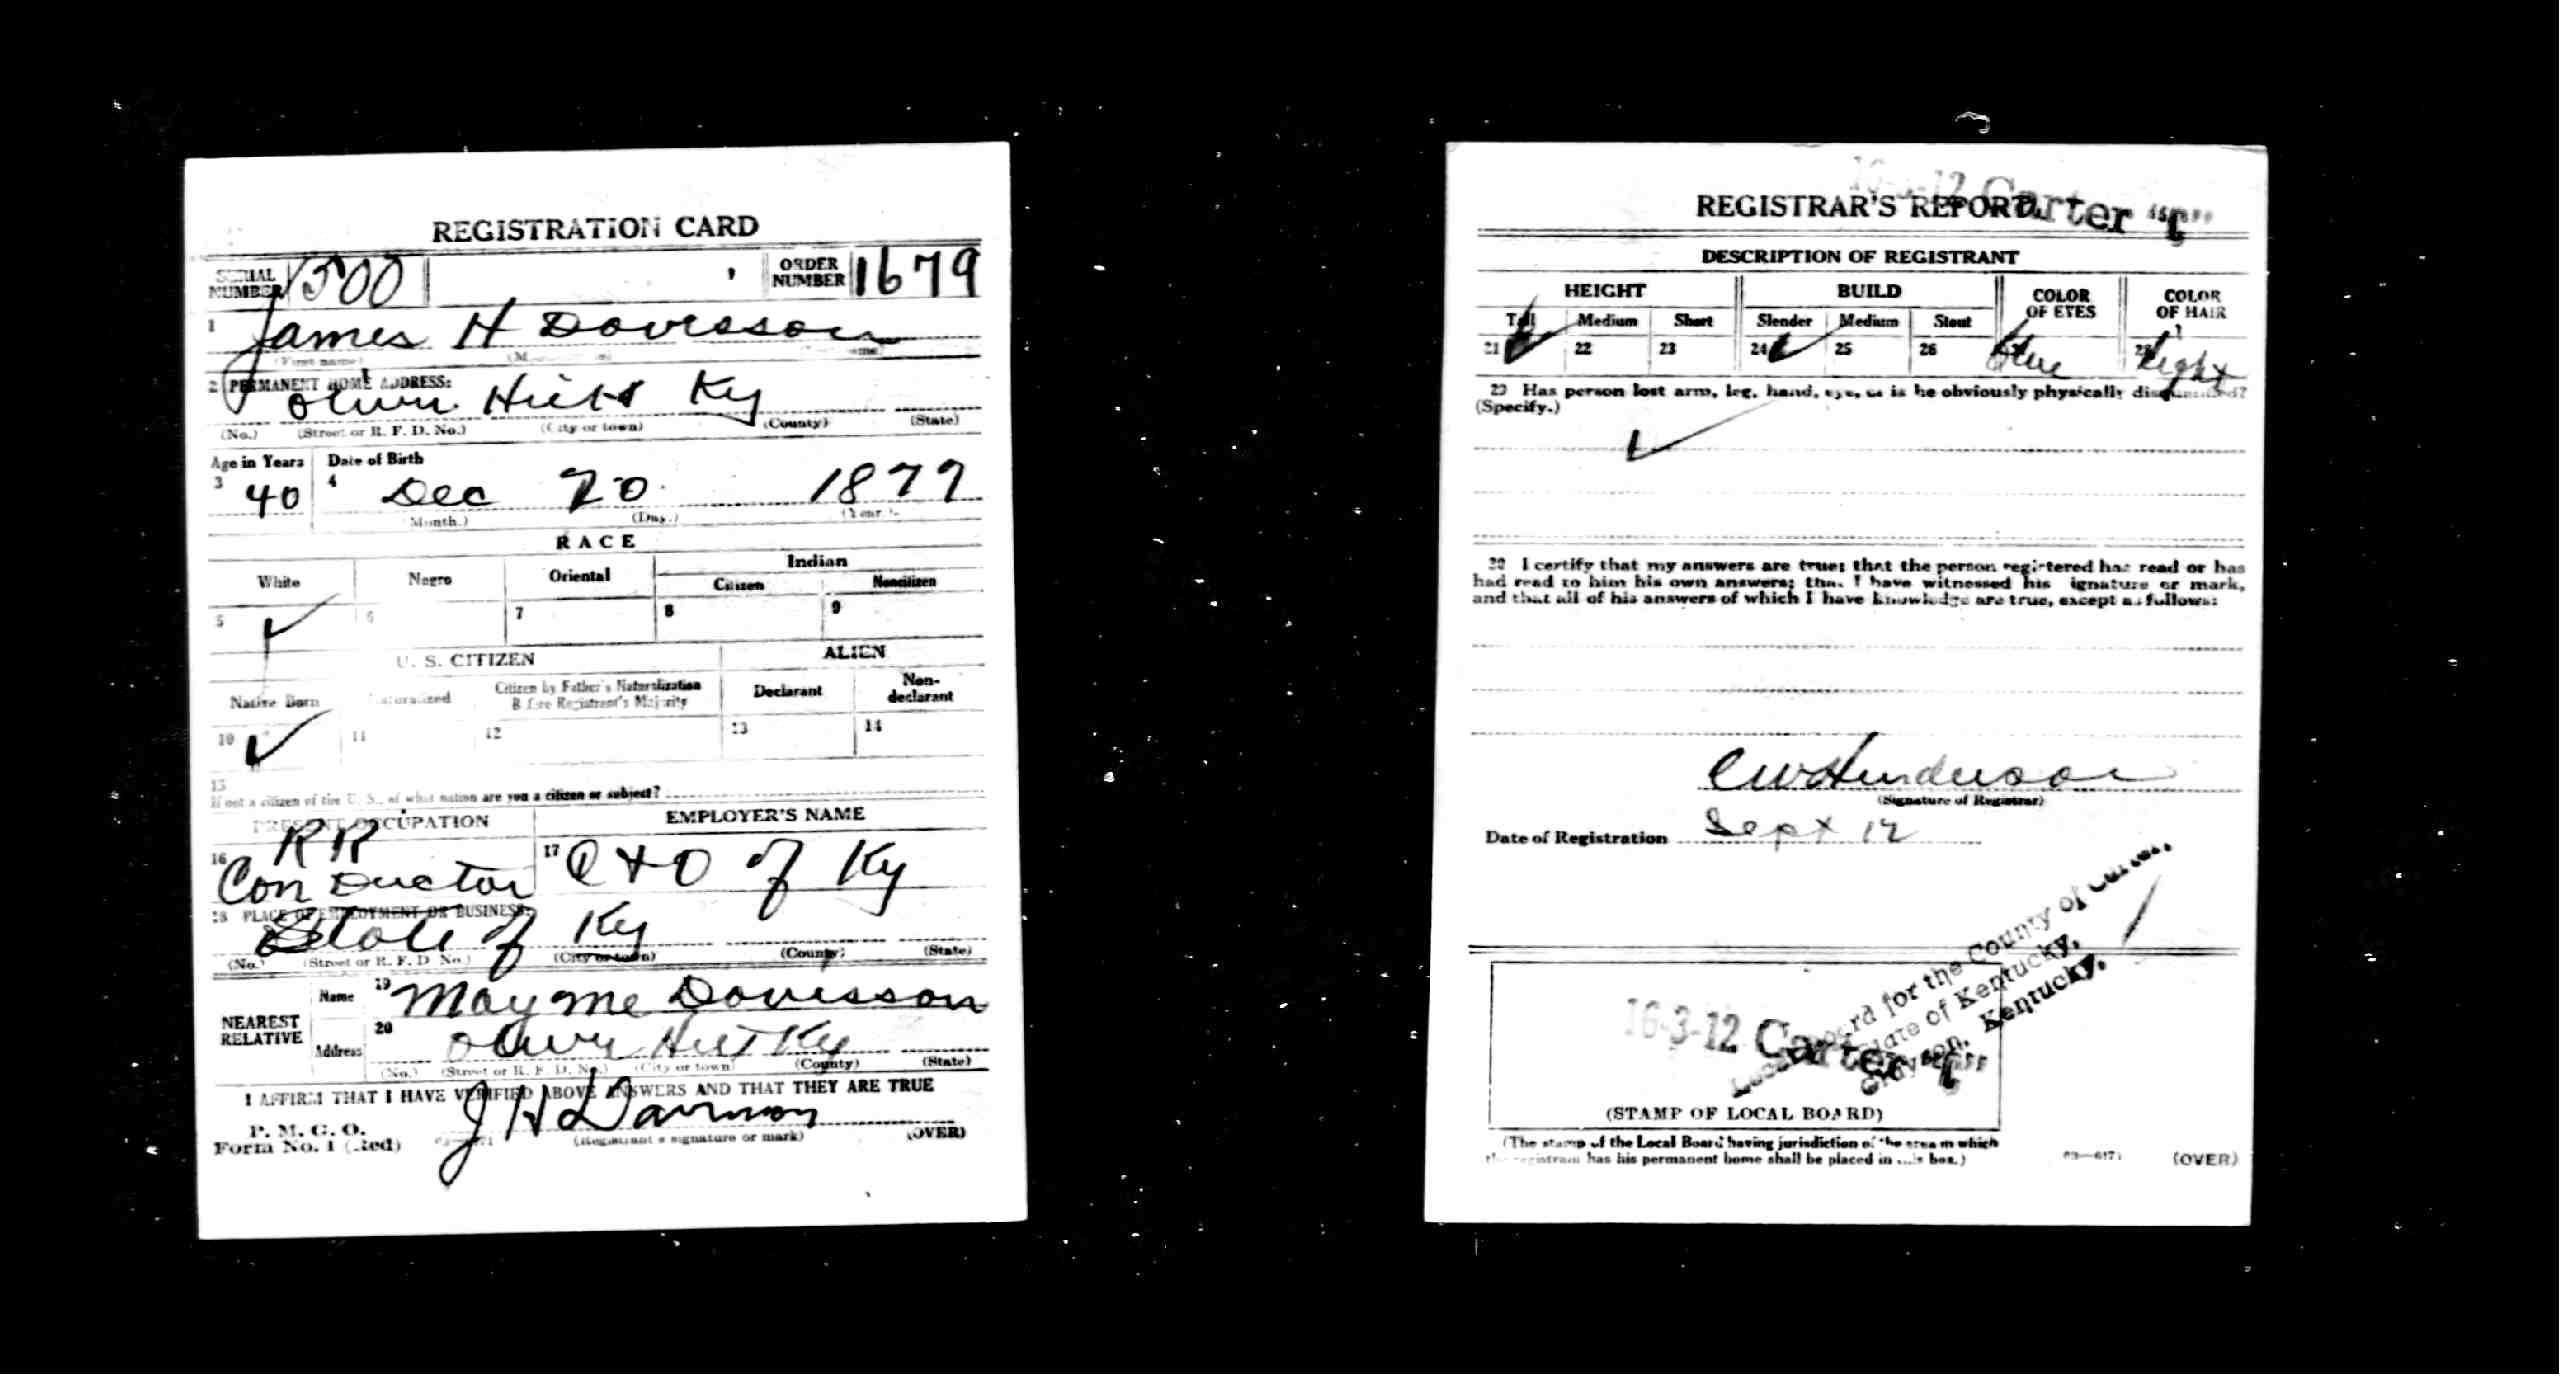 REGISTRATION CARD
SERIAL NUMBER 1500 ORDER NUMBER 1679
1 James H Davisson
(First name) (Middle name) (Last name)
2 PERMANENT HOME ADDRESS:
Olive Hill Ky
(No.) (Street or R. F. D. No.) (City or town) (County) (State)
Age in Years Date of Birth
3 40 4 Dec 20 1877
(Month.) (Day.) (Year.)
RACE
White Negro Oriental Indian
Citizen Noncitizen
5 ✓ 6 7 8 9
U. S. CITIZEN ALIEN
Native Born Naturalized Citizen by Father's Naturalization Before Registrant's Majority Declarant Non-declarant
10 ✓ 11 12 13 14
15
If not a citizen of the U. S., of what nation are you a citizen or subject?
PRESENT OCCUPATION EMPLOYER'S NAME
16 RR Conductor 17 C & O of Ky
18 PLACE OF EMPLOYMENT OR BUSINESS:
State of Ky
(No.) (Street or R. F. D. No.) (City or town) (County) (State)
NEAREST RELATIVE
Name 19 Mayme Davisson
Address 20 Olive Hill Ky
(No.) (Street or R. F. D. No.) (City or town) (County) (State)
I AFFIRM THAT I HAVE VERIFIED ABOVE ANSWERS AND THAT THEY ARE TRUE
P. M. G. O.
Form No. 1 (Red) J H Davisson
(Registrant's signature or mark) (OVER)
16-3-12 Carter "C"
REGISTRAR'S REPORT
DESCRIPTION OF REGISTRANT
HEIGHT BUILD COLOR OF EYES COLOR OF HAIR
Tall Medium Short Slender Medium Stout
21 ✓ 22 23 24 ✓ 25 26 Blue Light
29 Has person lost arm, leg, hand, eye, or is he obviously physically disqualified?
(Specify.)
✓
30 I certify that my answers are true; that the person registered has read or has
had read to him his own answers; that I have witnessed his signature or mark,
and that all of his answers of which I have knowledge are true, except as follows:
C W Henderson
(Signature of Registrar)
Date of Registration Sept 12
Local Board for the County of Carter,
State of Kentucky,
Grayson, Kentucky.
16-3-12 Carter "C"
(STAMP OF LOCAL BOARD)
(The stamp of the Local Board having jurisdiction of the area in which
the registrant has his permanent home shall be placed in this box.)
(OVER)